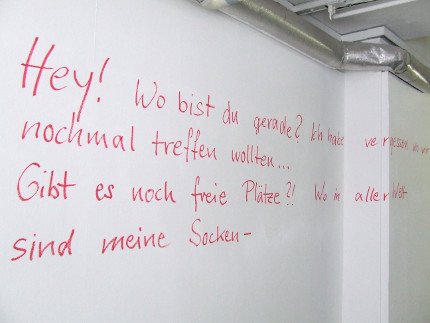 Hey! Wo bist du gerade? Ich habe vergessen wo wir
nochmal treffen wollten...
Gibt es noch freie Plätze?! Wo in aller Welt
sind meine Socken-